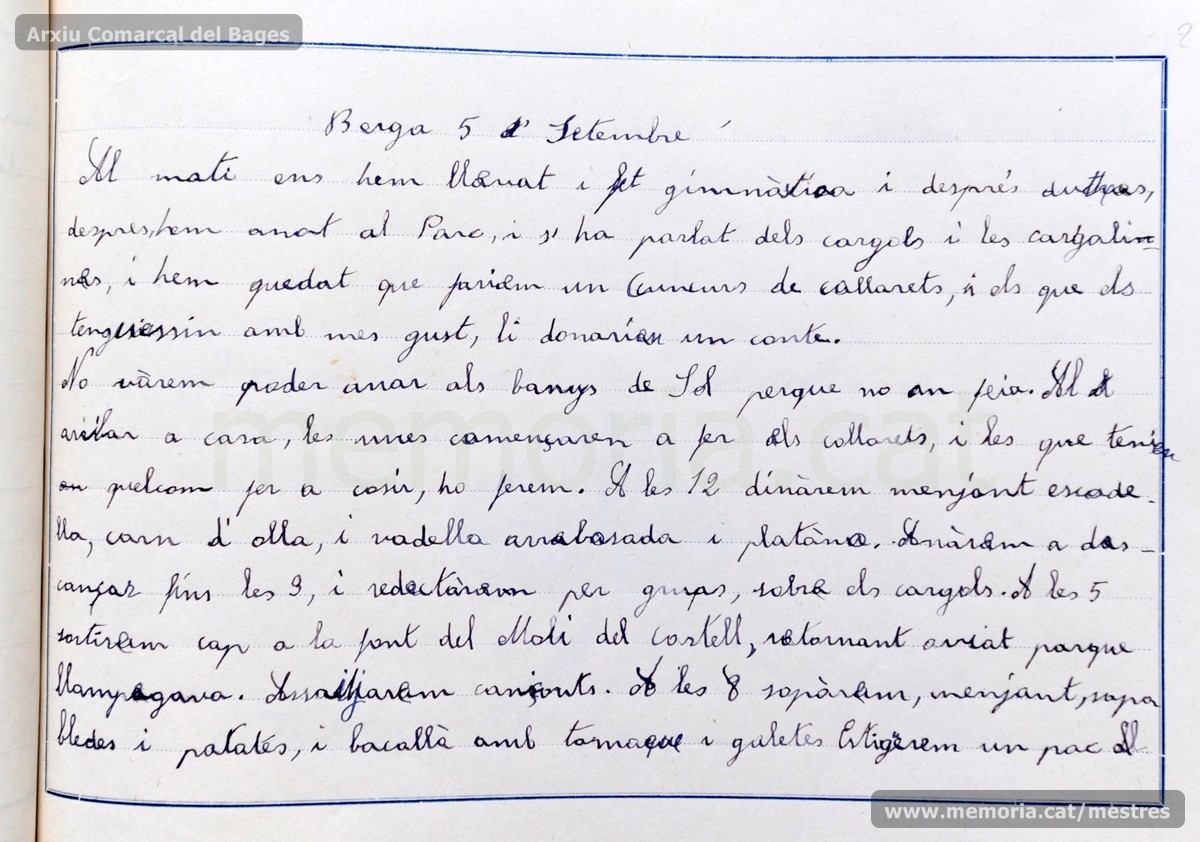 Arxiu Comarcal del Bages
2
Berga 5 d' Setembre
Al mati ens hem llevat i fet gimnàstica i després dutxes,
despres, hem anat al Parc, i s' ha parlat dels cargols i les cargolin-
nes, i hem quedat que fariem un Cuncurs de collarets, i els que els
tenguessin amb mes gust, li donarien un conte.
No vàrem poder anar als banys de Sol perque no en feia. Al
arribar a casa, les unes començarem a fer els collarets, i les que tenien
en quelcom per a cosir, ho ferem. A les 12 dinàrem menjant escude-
lla, carn d' olla, i vadella arrebosada i platàns. Anàrem a des-
cançar fins les 3, i redactàrem per grups, sobre els cargols. A les 5
sortirem cap a la font del Moli del Castell, retornant aviat perque
llampegava. Assaitjarem cançons. A les 8 sopàrem, menjant, sopa
bledes i patates, i bacallà amb tomaque i galetes Estigerem un poc al
memoria.cat
www.memoria.cat/mestres